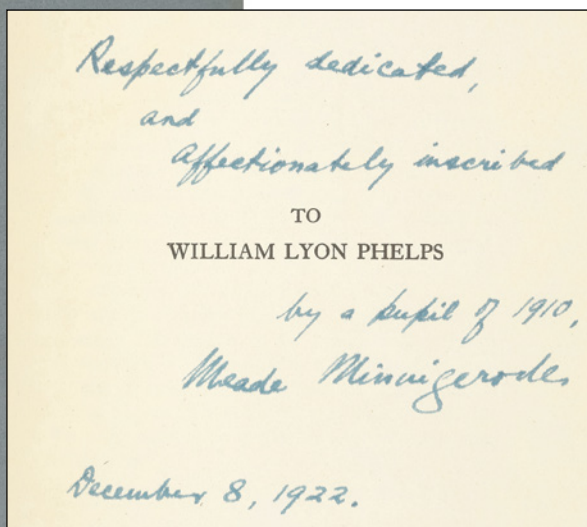 Respectfully dedicated,
and
affectionately inscribed
TO
WILLIAM LYON PHELPS
by a pupil of 1910,
Meade Minnigerode
December 8, 1922.